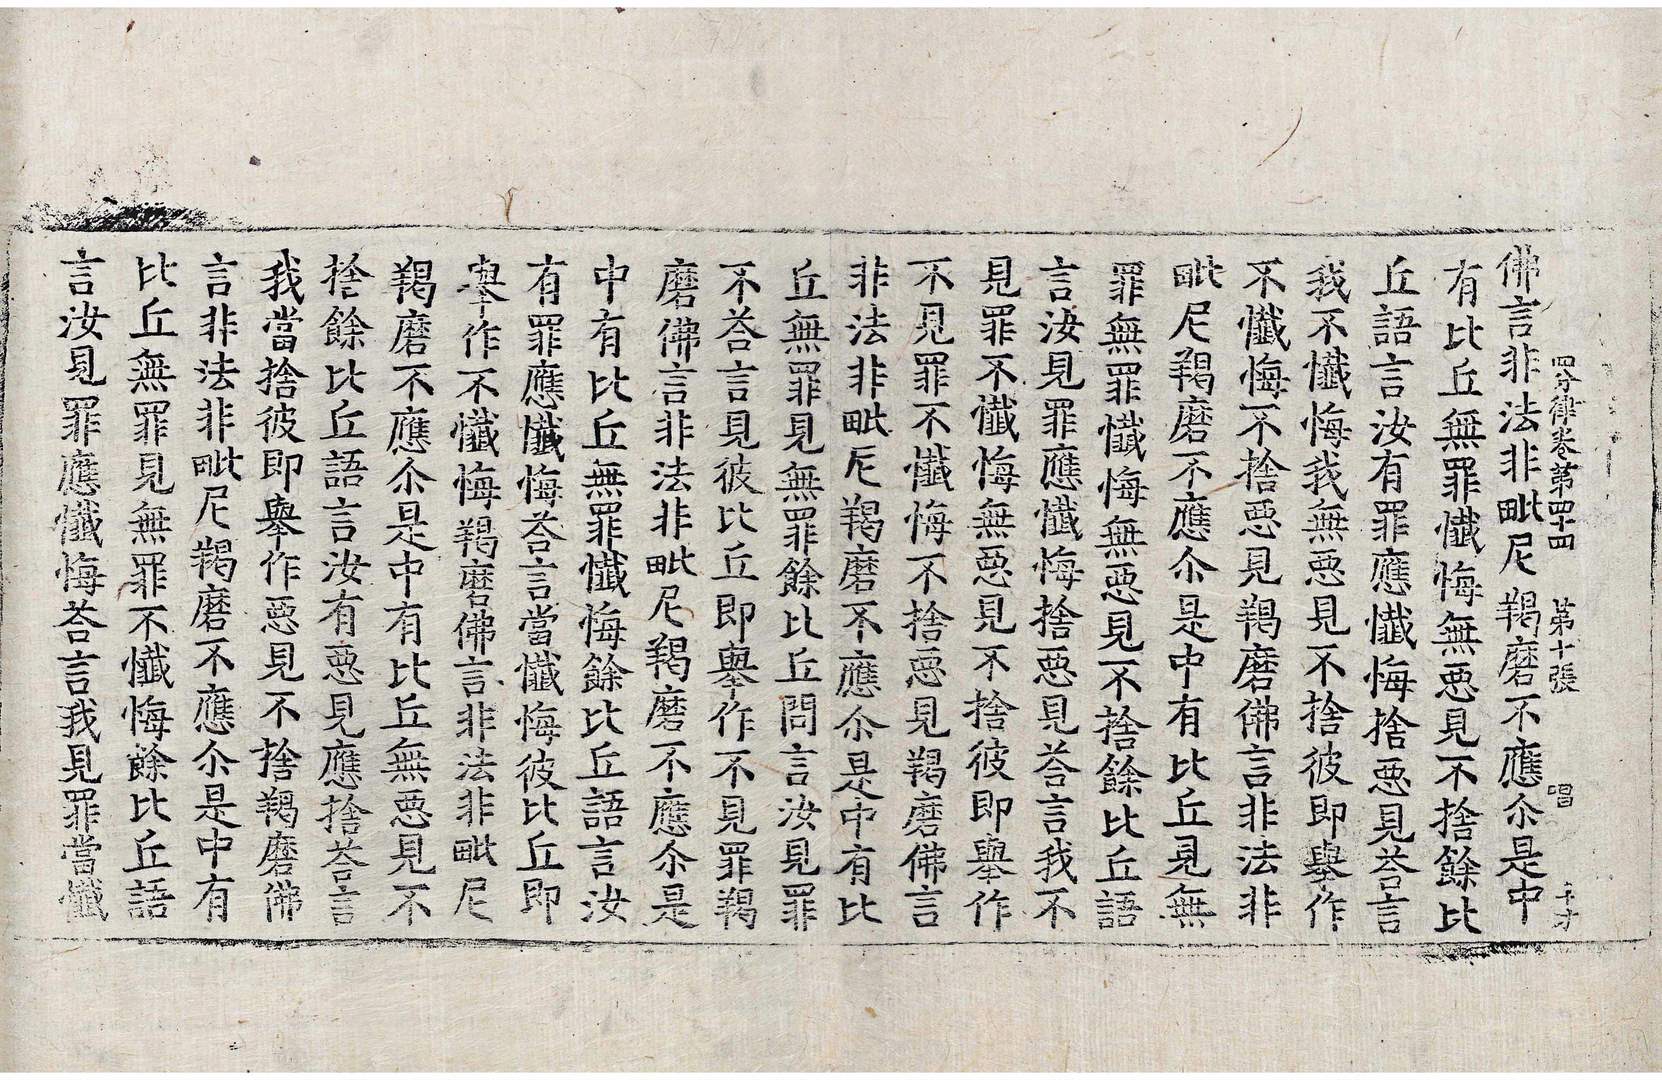 四分律卷第四十四 第十張 唱
佛言非法非毗尼羯磨不應尒是中
有比丘無罪懺悔無惡見不捨餘比
丘語言汝有罪應懺悔捨惡見荅言
我不懺悔我無惡見不捨彼即舉作
不懺悔不捨惡見羯磨佛言非法非
毗尼羯磨不應尒是中有比丘見無
罪無罪懺悔無惡見不捨餘比丘語
言汝見罪應懺悔捨惡見荅言我不
見罪不懺悔無惡見不捨彼即舉作
不見罪不懺悔不捨惡見羯磨佛言
非法非毗尼羯磨不應尒是中有比
丘無罪見無罪餘比丘問言汝見罪
不荅言見彼比丘即舉作不見罪羯
磨佛言非法非毗尼羯磨不應尒是
中有比丘無罪懺悔餘比丘語言汝
有罪應懺悔荅言當懺悔彼比丘即
舉作不懺悔羯磨佛言非法非毗尼
羯磨不應尒是中有比丘無惡見不
捨餘比丘語言汝有惡見應捨荅言
我當捨彼即舉作惡見不捨羯磨佛
言非法非毗尼羯磨不應尒是中有
比丘無罪見無罪不懺悔餘比丘語
言汝見罪應懺悔荅言我見罪當懺